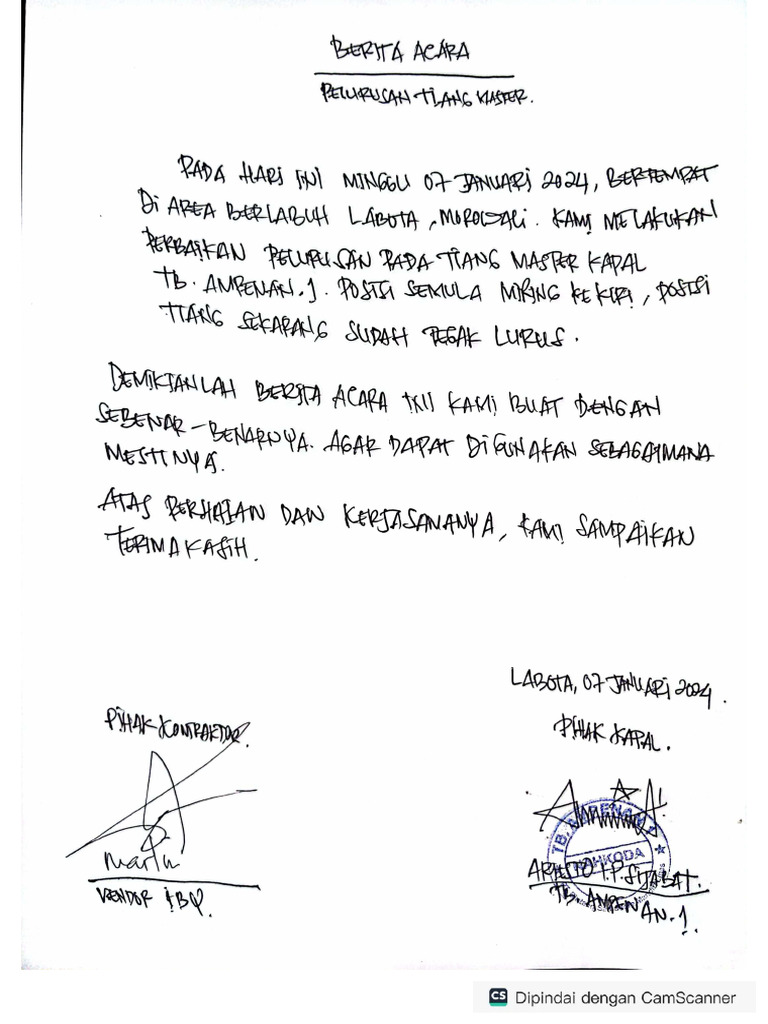 BERITA ACARA
PELURUSAN TIANG MASTER.
PADA HARI INI MINGGU 07 JANUARI 2024, BERTEMPAT
DI AREA BERLABUH LABOTA, MOROWALI. KAMI MELAKUKAN
PERBAIKAN PELURUSAN PADA TIANG MASTER KAPAL
TB. AMPENAN.1. POSISI SEMULA MIRING KE KIRI, POSISI
TIANG SEKARANG SUDAH TEGAK LURUS.
DEMIKIANLAH BERITA ACARA INI KAMI BUAT DENGAN
SEBENAR-BENARNYA. AGAR DAPAT DIGUNAKAN SEBAGAIMANA
MESTINYA.
ATAS PERHATIAN DAN KERJASAMANYA, KAMI SAMPAIKAN
TERIMA KASIH.
LABOTA, 07 JANUARI 2024.
PIHAK KONTRAKTOR.
PIHAK KAPAL.
TB. AMPENAN 1
NAHKODA
ARISTO I.P. SIJABAT.
VENDOR
TB AMPENAN.1.
CS Dipindai dengan CamScanner